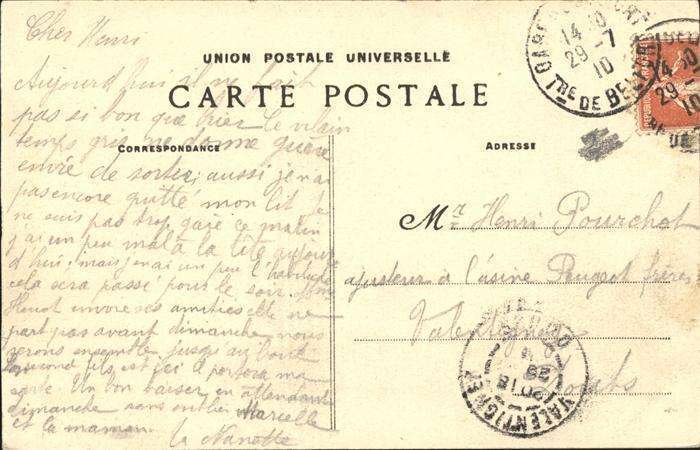 Cher Henri
UNION POSTALE UNIVERSELLE
CARTE POSTALE
CORRESPONDANCE
ADRESSE
Aujourd'hui il ne fait
pas si bon que hier le vilain
temps gris me donne guere
envie de sortir, aussi je n'ai
pas encore quitté mon lit. Je
ne suis pas trop gaie ce matin
j'ai un peu mal à la tête aujour
d'hui; mais j'en ai un peu l'habitude
cela sera passé pour le soir.
envoie ses amitiés elle ne
part pas avant dimanche nous
serons ensemble jusqu'au bout
second fils, est ici a portera ma
carte. Un bon baiser en attendant
dimanche sans oublier Marcelle
et la maman.
la Nanette
Mr Henri Pourchot
ajusteur à l'usine Peugeot frères
Valentigney
Doubs
14 10
29 -7
10
DE BELFORT
14 10
29 -
10
VALENTIGNEY